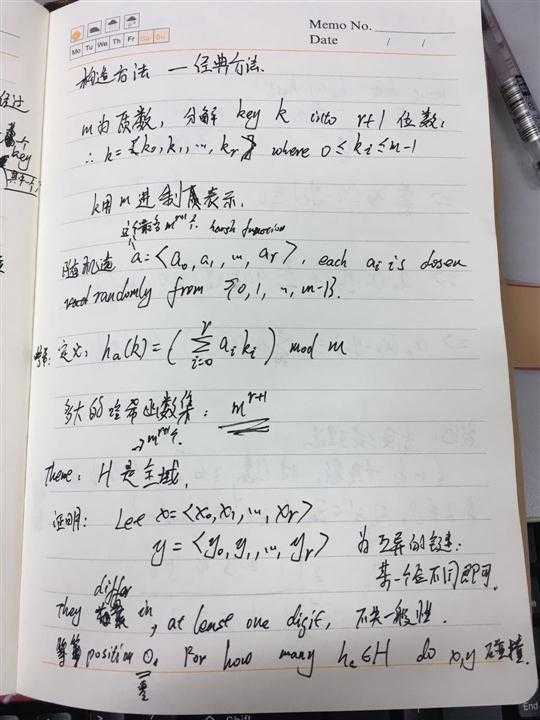 Memo No.
Mo Tu We Th Fr Sa Su
Date / /
构造方法 — 经典方法.
m为质数, 分解 key k into r+1 位数:
∴ k = <k0, k1, ..., kr> where 0 ≤ ki ≤ m-1
k用m进制表示.
m^(r+1)个 harsh function
随机选 a = <a0, a1, ..., ar>, each ai is chosen
randomly from {0, 1, ..., m-1}.
定义: ha(k) = ( Σ(i=0..r) ai ki ) mod m
多大的哈希函数集: m^(r+1)
→ m^(r+1)个.
Theme: H是全域.
证明: Let x = <x0, x1, ..., xr>
y = <y0, y1, ..., yr> 为互异的键:
某一个位不同即可.
differ
They in, at least one digit, 不失一般性.
position 0. For how many ha∈H do x,y 碰撞.
过
key